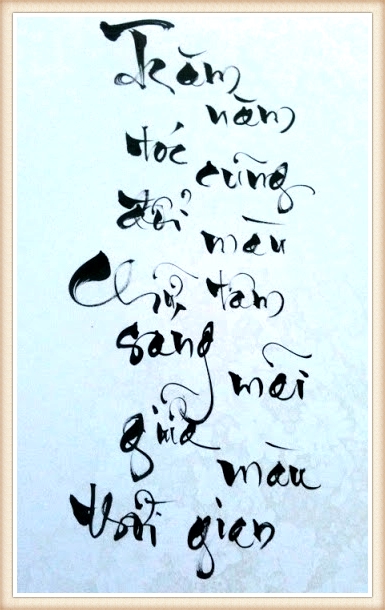 Trăm
năm
tóc
cũng
đổi
màu
Chữ tâm
sáng
mãi
giữa
màu
thời gian